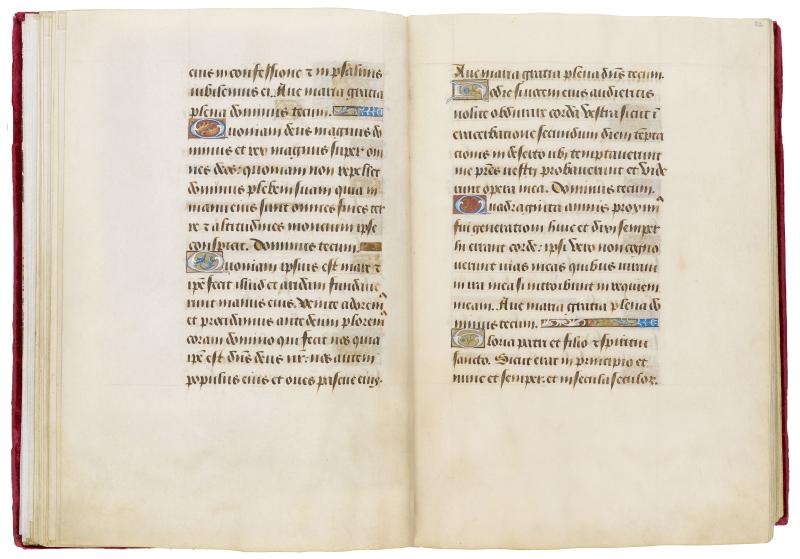 eius in confessione ⁊ in psalmis
iubilemus ei. Aue maria gratia
plena dominus tecum.
Quoniam deus magnus do
minus et rex magnus super om
nes deos: quoniam non repellet
dominus plebem suam quia in
manu eius sunt omnes fines ter
re ⁊ altitudines moncium ipse
conspicit. Dominus tecum.
Quoniam ipsius est mare ⁊
ip̄e fecit illud et aridam fundaue
runt manus eius. Venite adorem̄
et procidamus ante deum plorem̄
coram domino qui fecit nos quia
ip̄e est dn̄s deus nr̄: nos autem
populus eius et oues pascue eius.
Aue maria gratia plena dn̄s tecum.
Hodie si uocem eius audieritis
nolite obdurare corda vestra sicut ī
exacerbatione secundum diem tēpta
cionis in deserto ubi temptauerunt
me pr̄es vestri probauerunt et vide
runt opera mea. Dominus tecum.
Quadraginta annis proxim̄
fui generationi huic et dixi semper
hi errant corde: ipsi vero non cogno
uerunt uias meas quibus iuraui
in ira mea si introibunt in requiem
meam. Aue maria gratia plena do
minus tecum.
Gloria patri et filio ⁊ spiritui
sancto. Sicut erat in principio et
nunc et semper. et in secula seculor.